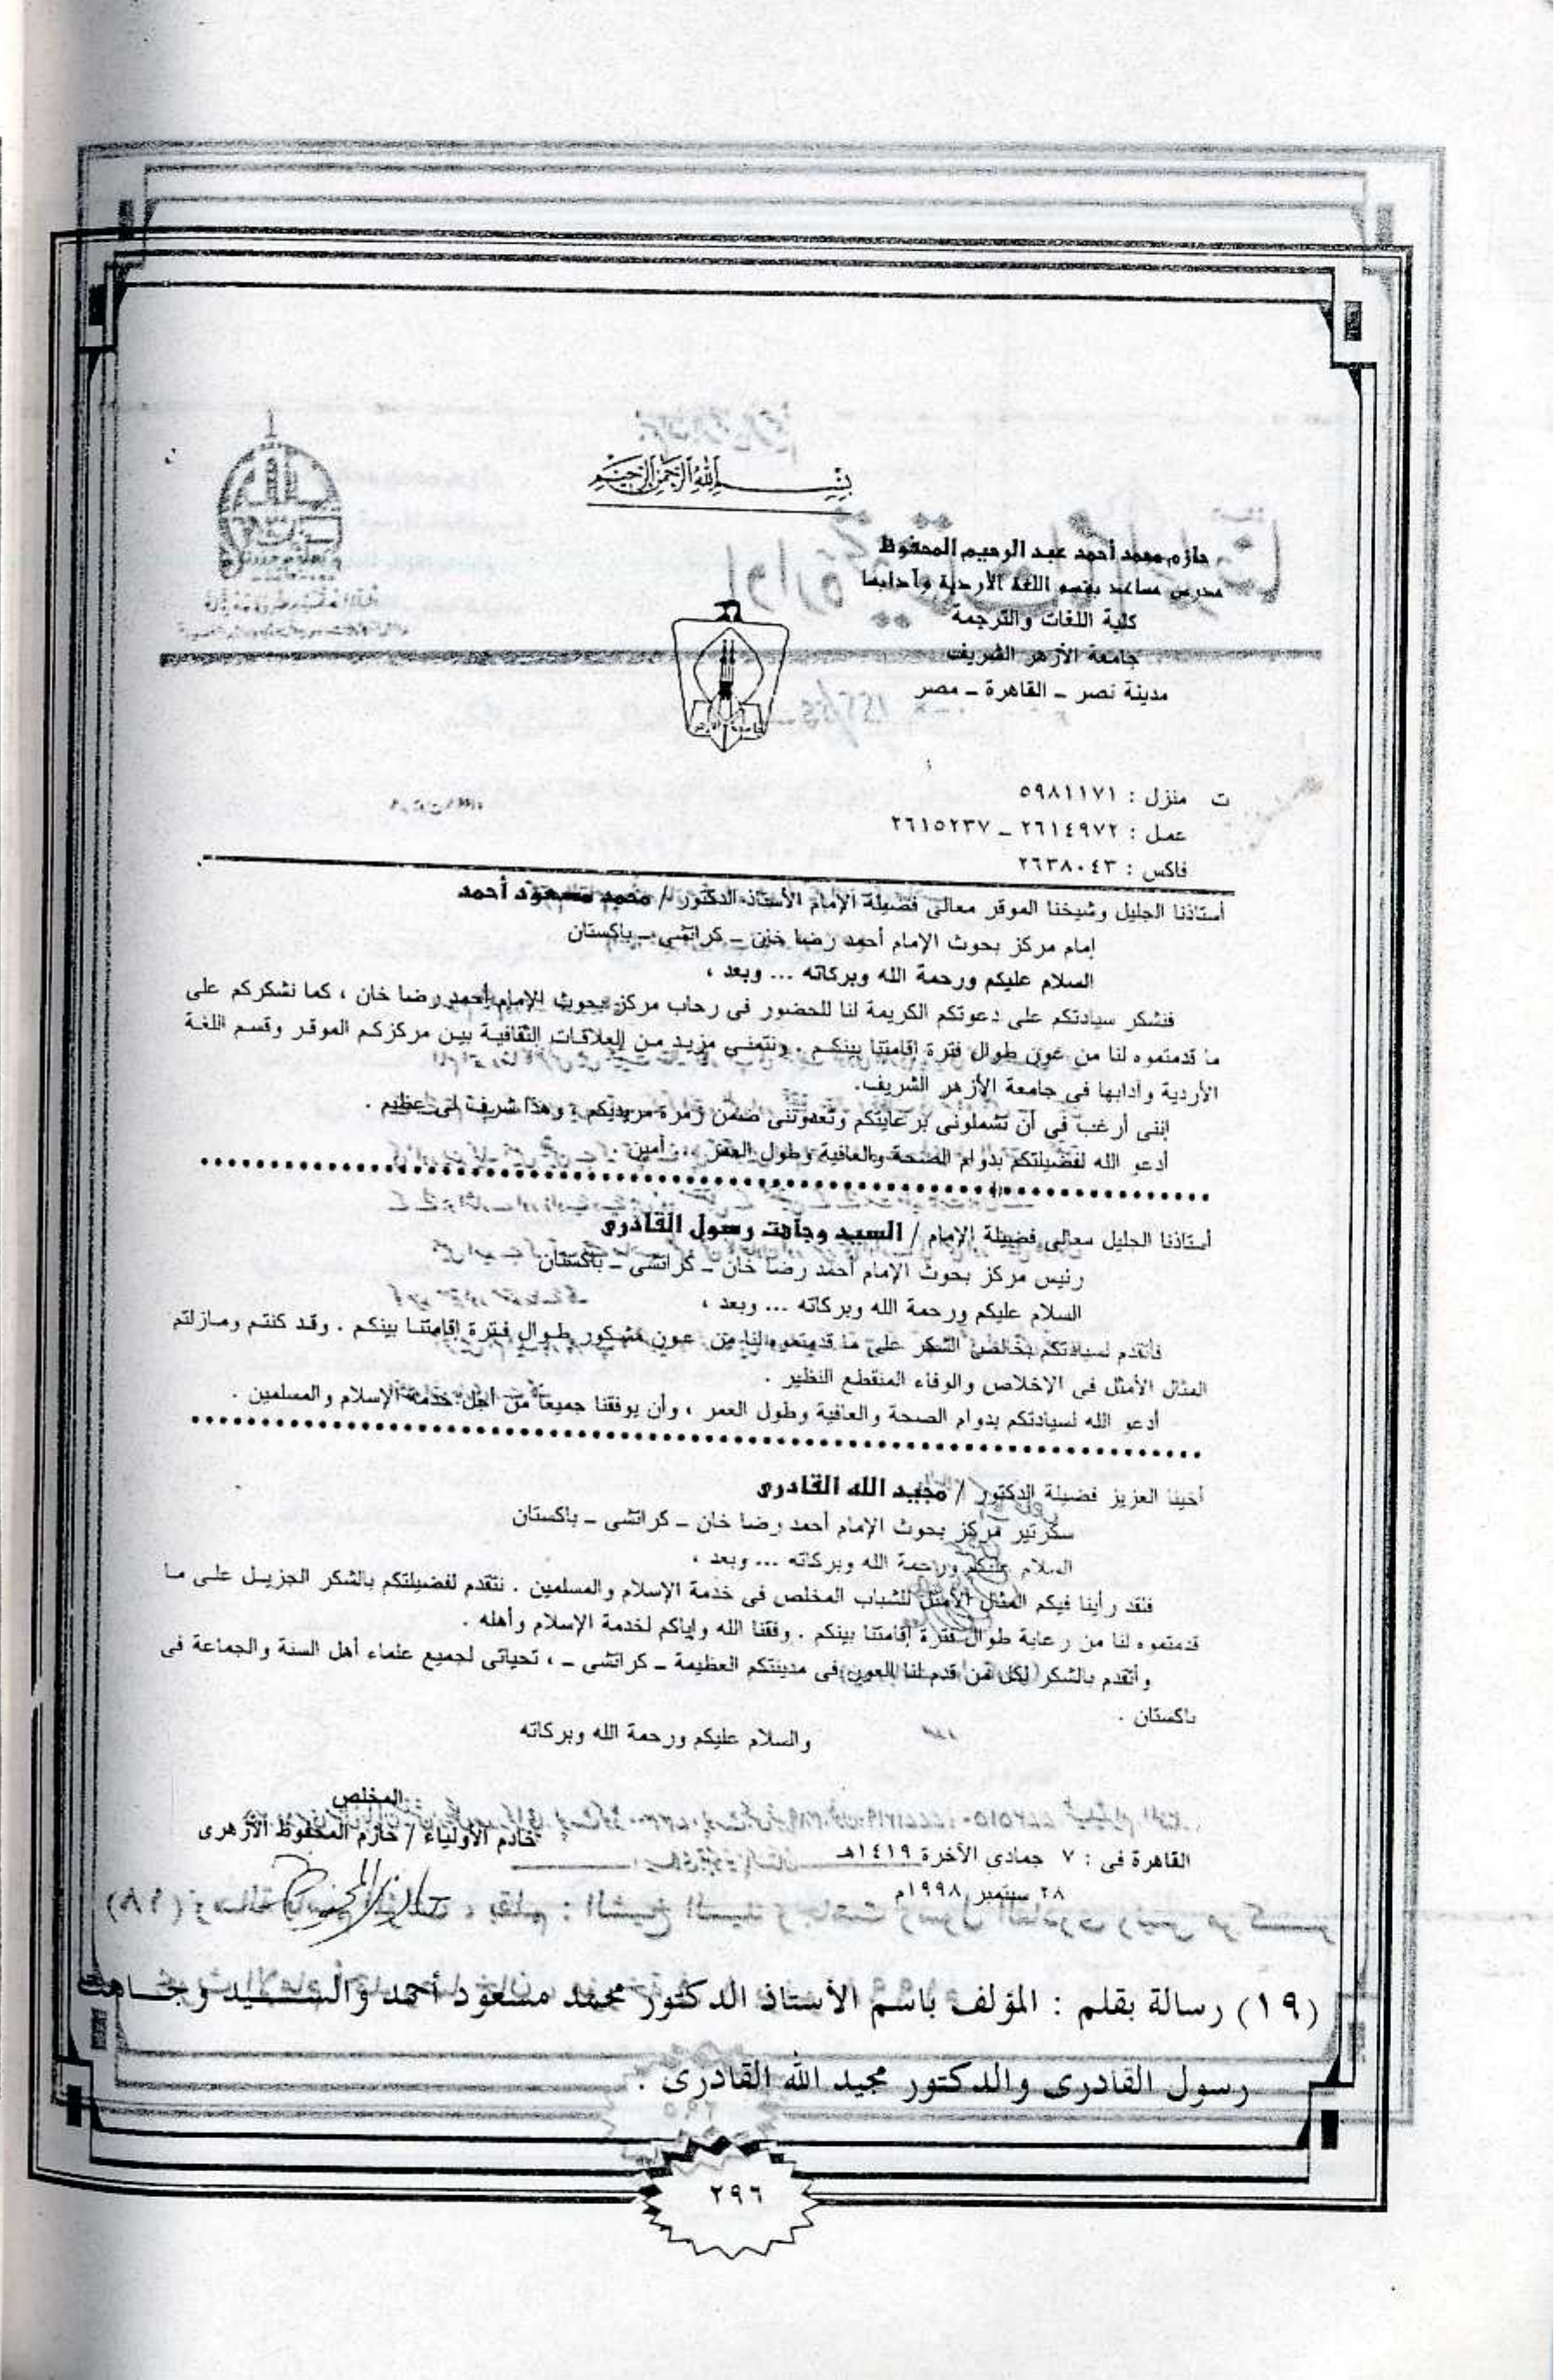 بسم الله الرحمن الرحيم
حازم محمد أحمد عبد الرحيم المحفوظ
مدرس مساعد بقسم اللغة الأردية وآدابها
كلية اللغات والترجمة
جامعة الأزهر الشريف
مدينة نصر - القاهرة - مصر
ت منزل : ٥٩٨١١٧١
عمل : ٢٦١٤٩٧٢ - ٢٦١٥٢٣٧
فاكس : ٢٦٣٨٠٤٣
أستاذنا الجليل وشيخنا الموقر معالى فضيلة الإمام الأستاذ الدكتور / محمد مسعود أحمد
إمام مركز بحوث الإمام أحمد رضا خان - كراتشى - باكستان
السلام عليكم ورحمة الله وبركاته ... وبعد ،
فنشكر سيادتكم على دعوتكم الكريمة لنا للحضور فى رحاب مركز بحوث الإمام أحمد رضا خان ، كما نشكركم على
ما قدمتموه لنا من عون طوال فترة إقامتنا بينكم . ونتمنى مزيد من العلاقات الثقافية بين مركزكم الموقر وقسم اللغة
الأردية وآدابها فى جامعة الأزهر الشريف.
إننى أرغب فى أن تشملونى برعايتكم وتعدوننى ضمن زمرة مريديكم ، وهذا شرف لى عظيم .
أدعو الله لفضيلتكم بدوام الصحة والعافية وطول العمر ... آمين .
أستاذنا الجليل معالى فضيلة الإمام / السيد وجاهت رسول القادرى
رئيس مركز بحوث الإمام أحمد رضا خان - كراتشى - باكستان
السلام عليكم ورحمة الله وبركاته ... وبعد ،
فأتقدم لسيادتكم بخالص الشكر على ما قدمتموه لنا من عون مشكور طوال فترة إقامتنا بينكم . وقد كنتم ومازلتم
المثال الأمثل فى الإخلاص والوفاء المنقطع النظير .
أدعو الله لسيادتكم بدوام الصحة والعافية وطول العمر ، وأن يوفقنا جميعا من أجل خدمة الإسلام والمسلمين .
أخينا العزيز فضيلة الدكتور / مجيد الله القادرى
سكرتير مركز بحوث الإمام أحمد رضا خان - كراتشى - باكستان
السلام عليكم ورحمة الله وبركاته ... وبعد ،
فلقد رأينا فيكم المثال الأمثل للشباب المخلص فى خدمة الإسلام والمسلمين . نتقدم لفضيلتكم بالشكر الجزيل على ما
قدمتموه لنا من رعاية طوال فترة إقامتنا بينكم . وفقنا الله وإياكم لخدمة الإسلام وأهله .
وأتقدم بالشكر لكل من قدم لنا العون فى مدينتكم العظيمة - كراتشى - ، تحياتى لجميع علماء أهل السنة والجماعة فى
باكستان .
والسلام عليكم ورحمة الله وبركاته
المخلص
خادم الأولياء / حازم المحفوظ الأزهرى
القاهرة فى : ٧ جمادى الآخرة ١٤١٩هـ
٢٨ سبتمبر ١٩٩٨م
(١٩) رسالة بقلم : المؤلف باسم الأستاذ الدكتور محمد مسعود أحمد والسيد وجاهت
رسول القادرى والدكتور مجيد الله القادرى .
٢٩٦